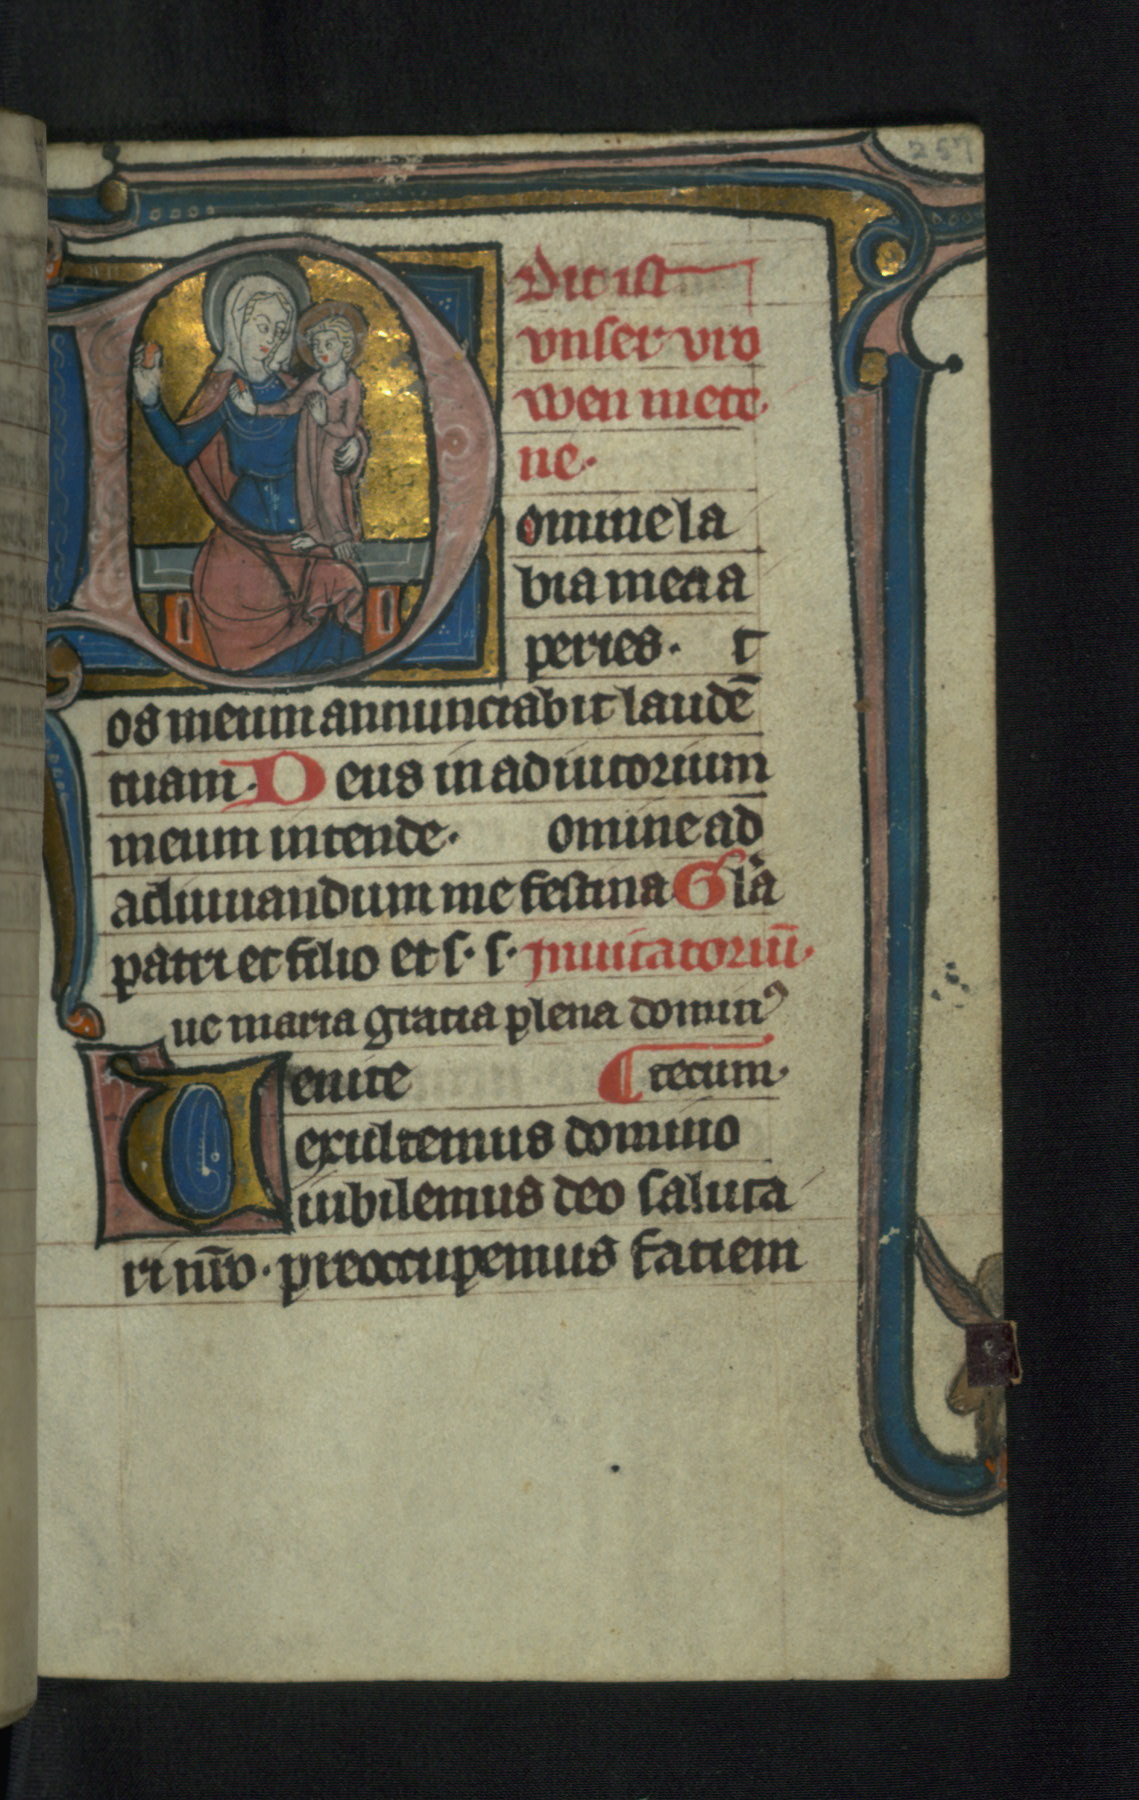 257
Dit ist
vnser vro
wen mett
ne·
omine la
bia mea a
peries· t
os meum annunciabit laudē
tuam· Deus in adiutorium
meum intende· omine ad
adiuuandum me festina Gla
patri et filio et s· s· Inuitatoriū·
ue maria gratia plena domin⁹
Uenite ¶ tecum·
exultemus domino
iubilemus deo saluta
ri nr̄o· preoccupemus faciem